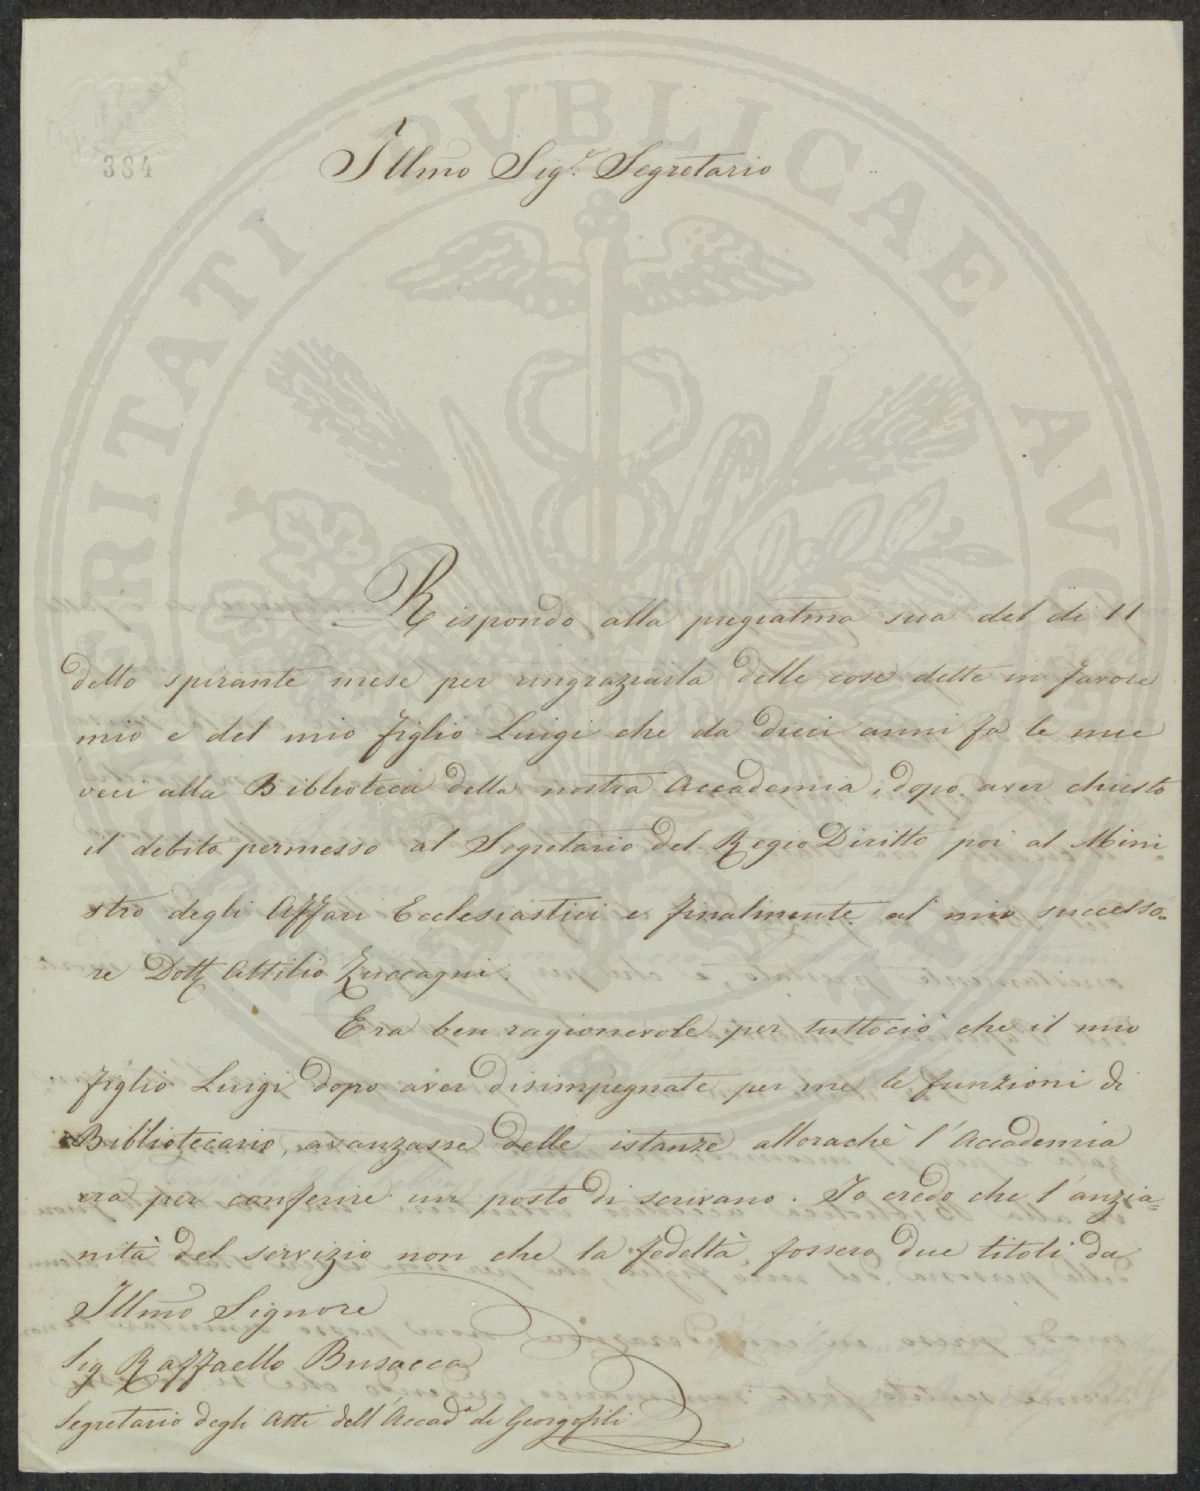 PROSPERITATI PVBLICAE AVGENDAE
384
Illmo Sig.r Segretario
Rispondo alla pregiatma sua del dì 11
dello spirante mese per ringraziarla delle cose dette in favore
mio e del mio figlio Luigi che da dieci anni fa le mie
veci alla Biblioteca della nostra Accademia, dopo aver chiesto
il debito permesso al Segretario del Regio Diritto poi al Mini=
stro degli Affari Ecclesiastici e finalmente al mio successo=
re Dott Attilio Zuccagni.
Era ben ragionevole per tuttociò che il mio
figlio Luigi dopo aver disimpegnate per me le funzioni di
Bibliotecario, avanzasse delle istanze allorachè l'Accademia
era per conferire un posto di scrivano. Io credo che l'anzia=
nità del servizio non che la fedeltà fossero due titoli da
Illmo Signore
Sig Raffaello Busacca
Segretario degli Atti dell'Accad.a de Georgofili